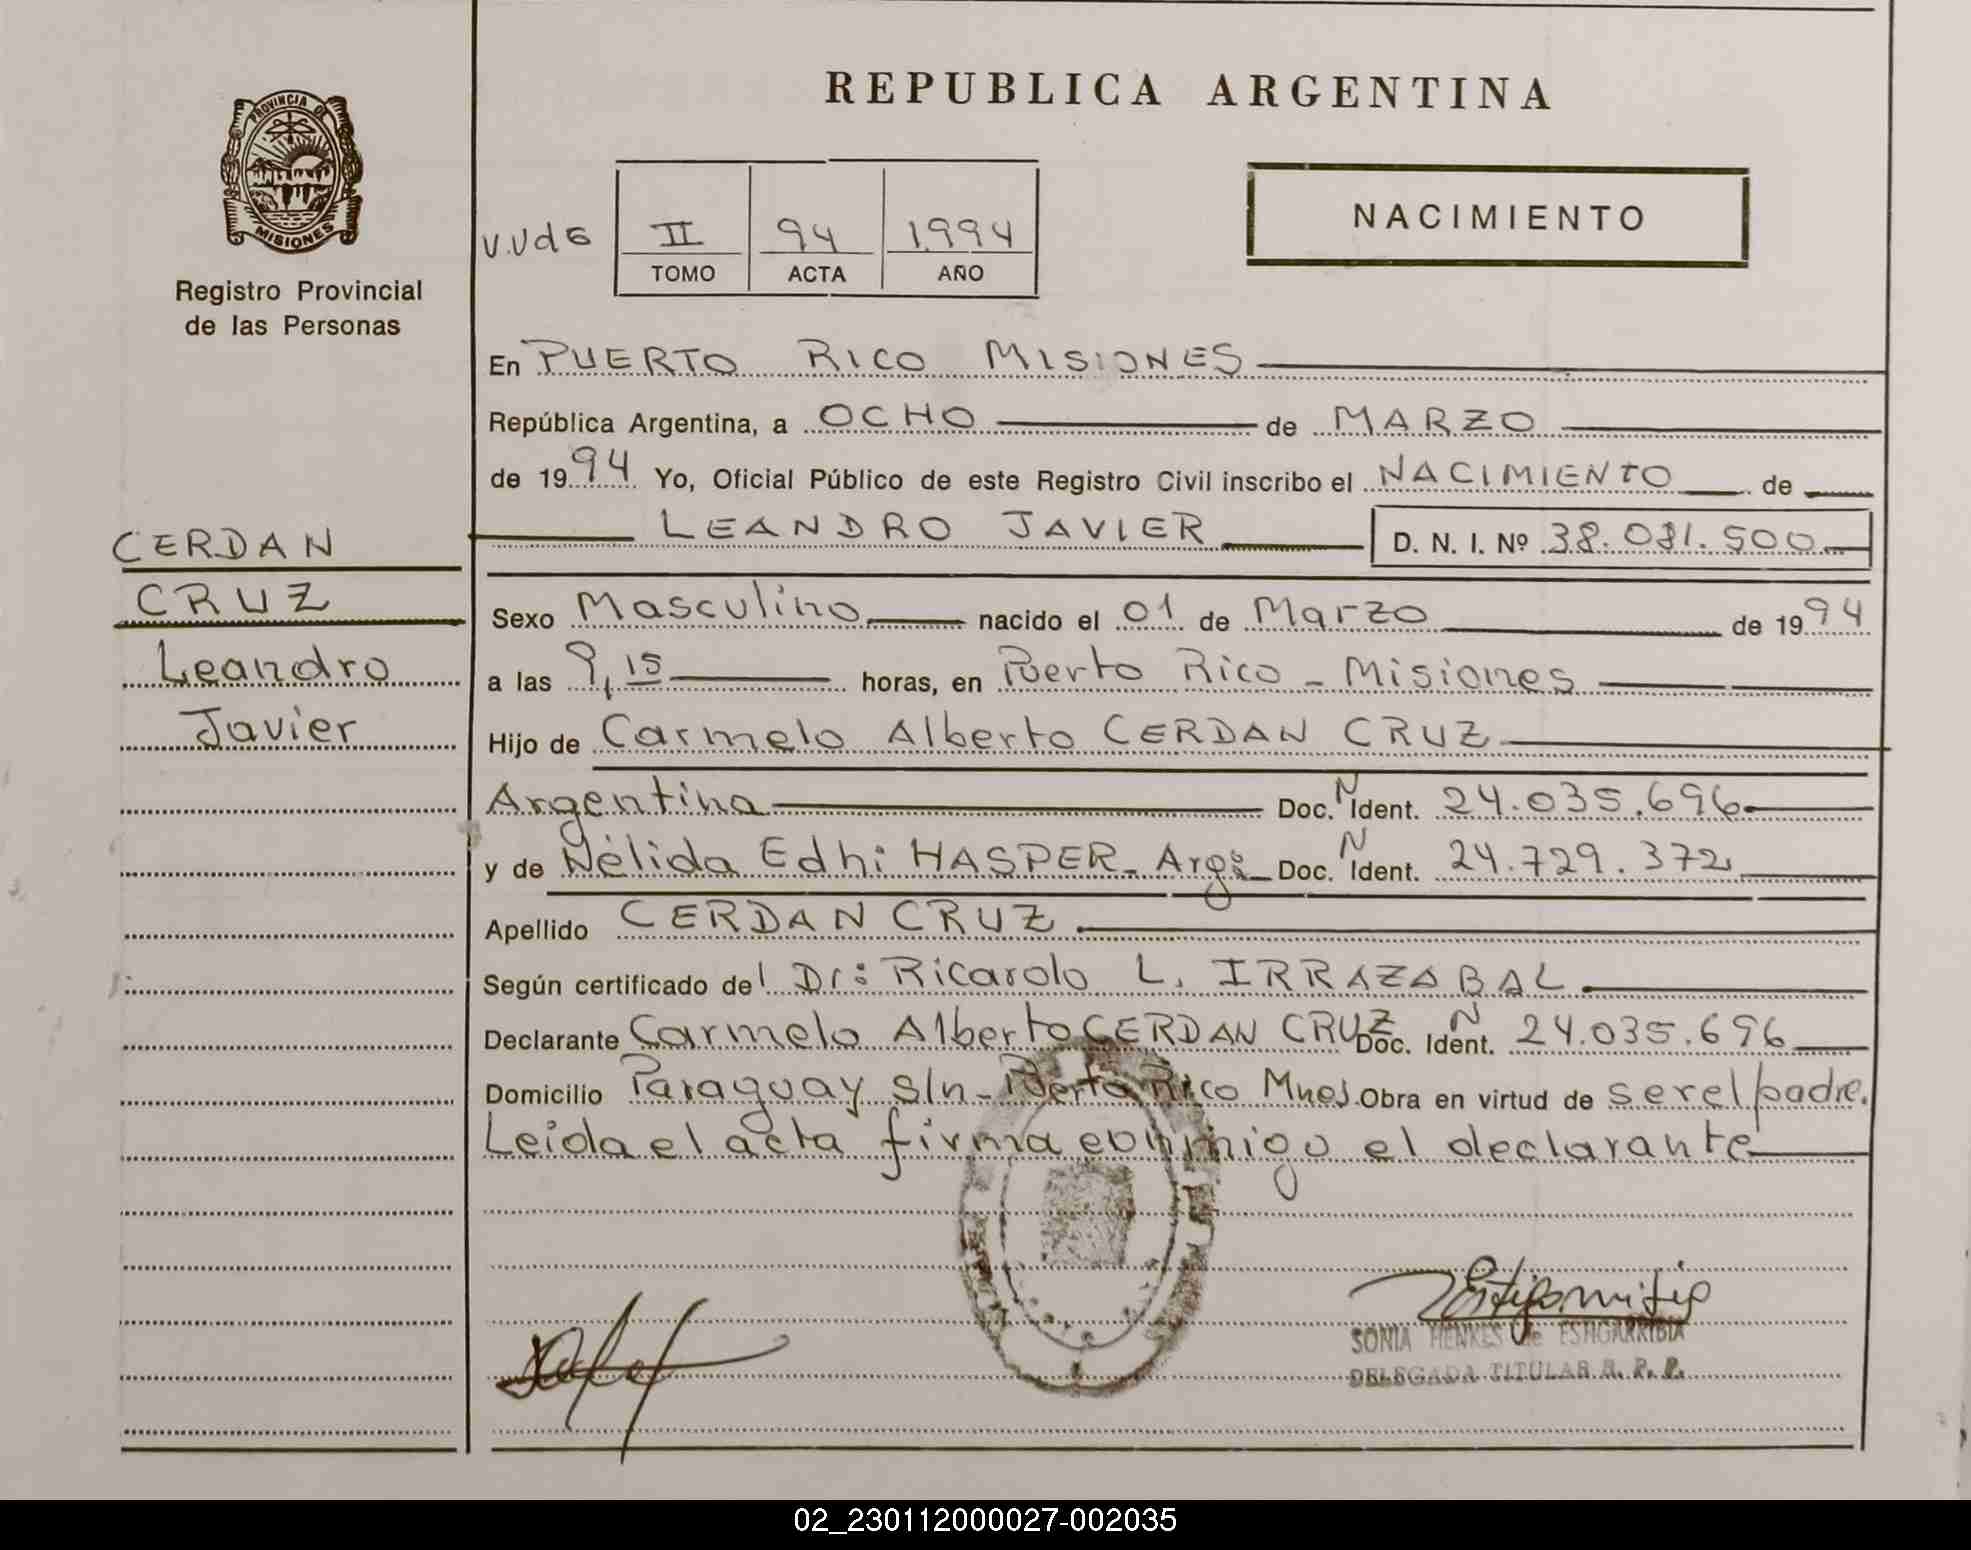 REPUBLICA ARGENTINA
PROVINCIA DE
MISIONES
Registro Provincial
de las Personas
V.Vd6
II 94 1994
TOMO ACTA AÑO
NACIMIENTO
En PUERTO RICO MISIONES
República Argentina, a OCHO de MARZO
de 1994 Yo, Oficial Público de este Registro Civil inscribo el NACIMIENTO de
LEANDRO JAVIER D. N. I. Nº 38.081.500
CERDAN
CRUZ
Leandro
Javier
Sexo Masculino nacido el 01 de Marzo de 1994
a las 9,15 horas, en Puerto Rico - Misiones
Hijo de Carmelo Alberto CERDAN CRUZ
Argentina Doc. N Ident. 24.035.696
y de Nélida Edhi HASPER - Arg: Doc. N Ident. 24.729.372
Apellido CERDAN CRUZ
Según certificado del Dr: Ricardo L. IRRAZABAL
Declarante Carmelo Alberto CERDAN CRUZ Doc. N Ident. 24.035.696
Domicilio Paraguay s/n - Puerto Rico Mnes Obra en virtud de ser el padre.
Leida el acta firma conmigo el declarante
SONIA HENKES de ESTIGARRIBIA
DELEGADA TITULAR R. P. P.
02_230112000027-002035